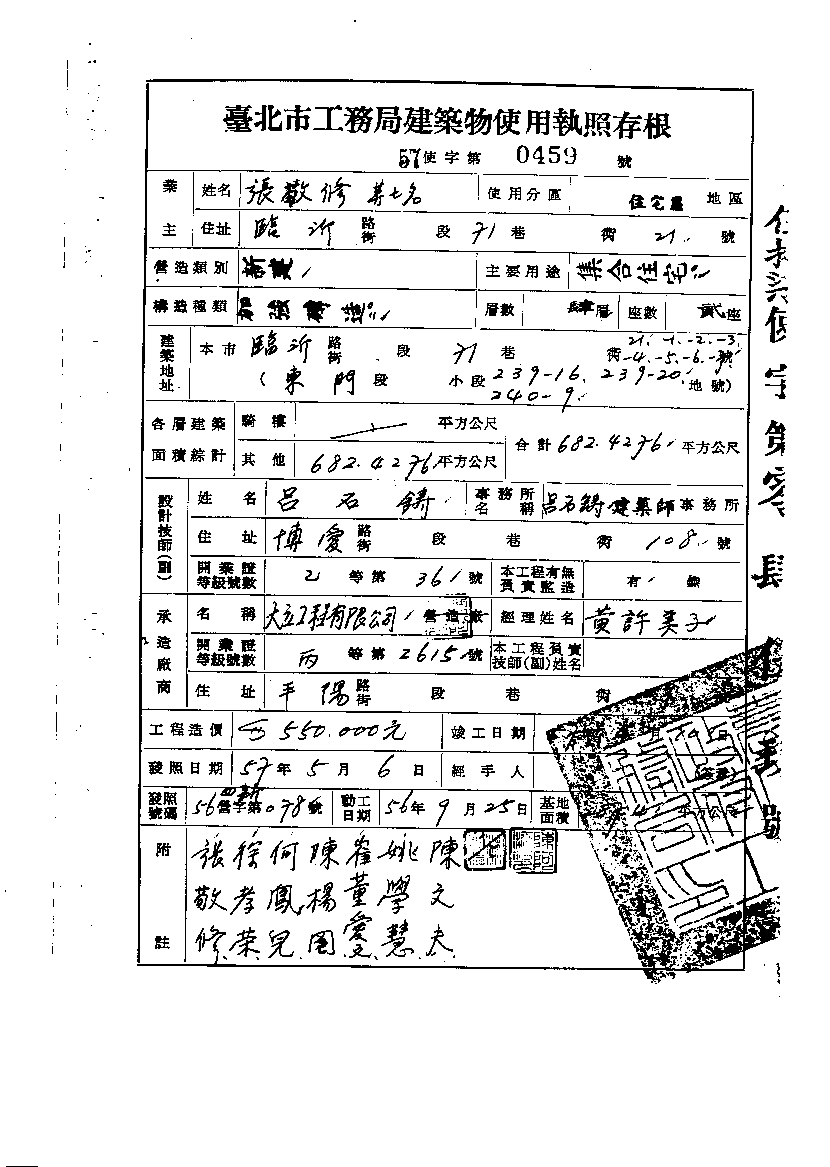 臺北市工務局建築物使用執照存根
57使字第 0459 號
業主 姓名 張敬修 等七名 使用分區 住宅區 地區
住址 臨沂路街 段 71巷 衖 21 號
營造類別 新建 主要用途 集合住宅
構造種類 加強磚造 層數 肆層 座數 貳座
建築地址 本市 臨沂路街 段 71巷 衖 21.-1.-2.-3.-4.-5.-6.-號
(東門段 小段 239-16. 239-20. 240-9. 地號)
各層建築面積綜計 騎樓 平方公尺 合計 682.4276 平方公尺
其他 682.4276 平方公尺
設計技師(副) 姓名 呂石鑄 事務所名稱 呂石鑄建築師事務所
住址 博愛路街 段 巷 衖 108 號
開業證等級號數 乙等第 361 號 本工程有無負責監造 有
承造廠商 名稱 大立工程有限公司 營造廠 經理姓名 黃許美子
開業證等級號數 丙等第 2615 號 本工程負責技師(副)姓名
住址 平陽路街 段 巷 衖
工程造價 550.000元 竣工日期 日
發照日期 57年5月6日 經手人
發照號碼 56營字第078號 動工日期 56年9月25日 基地面積 平方公尺
附註 張敬修 徐孝榮 何鳳兒 陳楊園 崔董愛 姚學慧 陳文夫